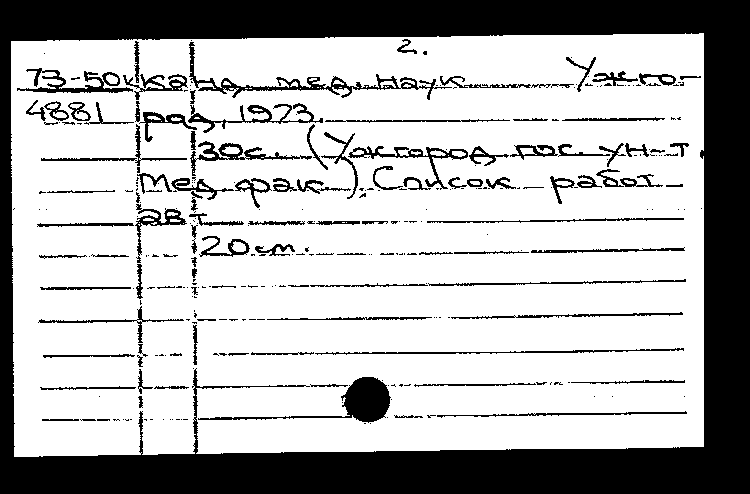 2.
73-50к канд. мед. наук Ужго-
4881 рад, 1973.
30с. (Ужгород гос. ун-т.
Мед фак). Список работ
авт
20 см.